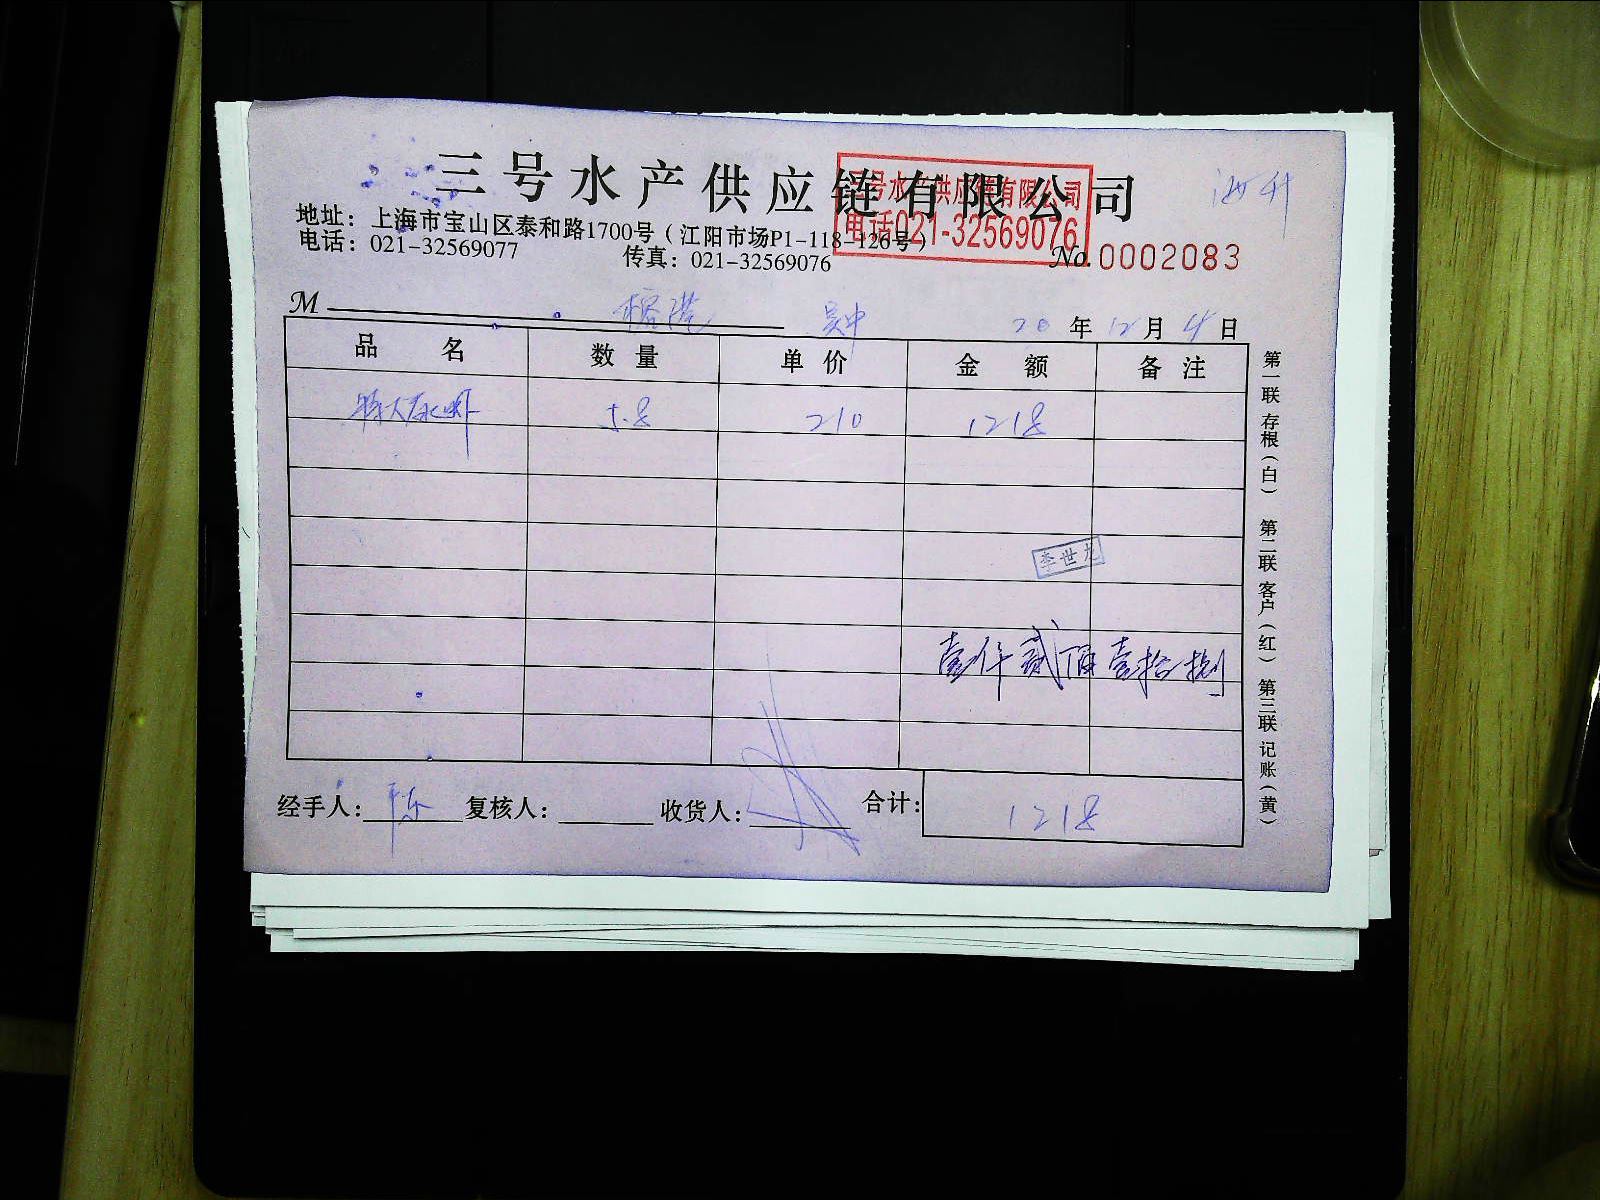 三号水产供应链有限公司
三号水产供应链有限公司
电话021-32569076
地址：上海市宝山区泰和路1700号（江阳市场P1-118-126号）
电话：021-32569077 传真：021-32569076
No. 0002083
M 榕港 吴中 20年12月4日
品名 数量 单价 金额 备注
特大 5.8 210 1218
李世龙
壹仟贰佰壹拾捌
经手人： 复核人： 收货人： 合计：1218
第一联 存根（白） 第二联 客户（红） 第三联 记账（黄）